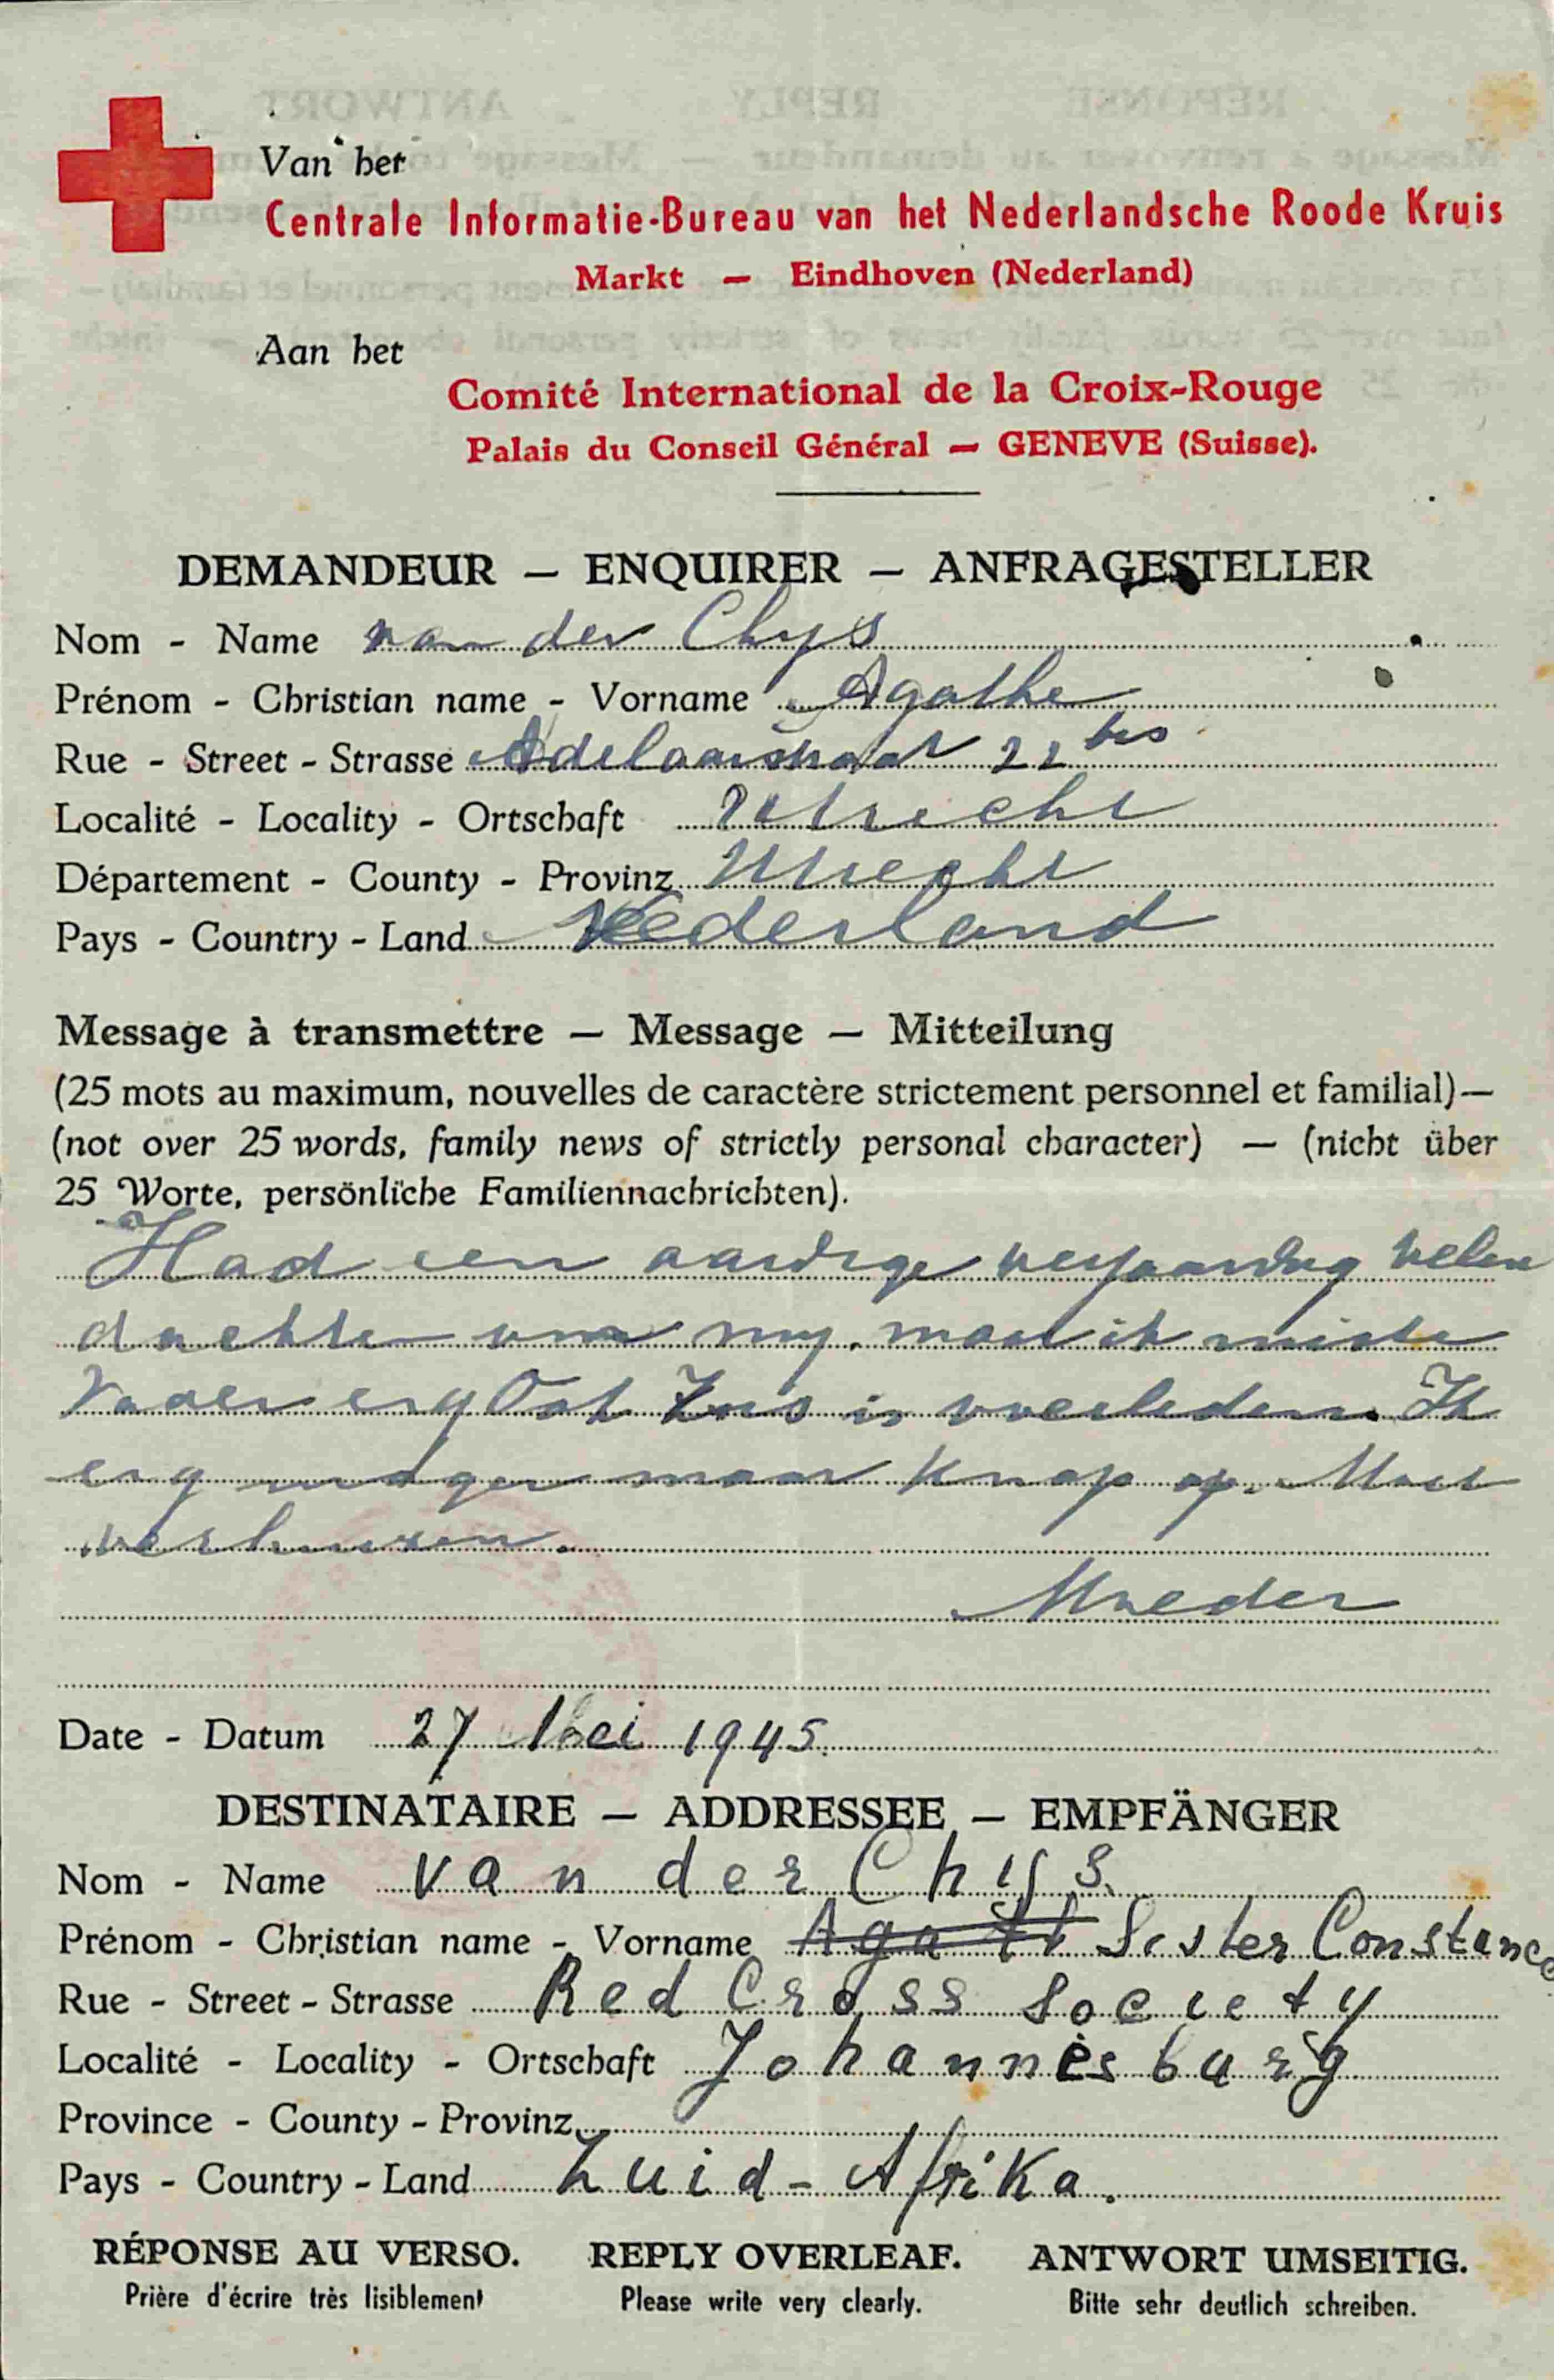 Van het
Centrale Informatie-Bureau van het Nederlandsche Roode Kruis
Markt — Eindhoven (Nederland)
Aan het
Comité International de la Croix-Rouge
Palais du Conseil Général — GENEVE (Suisse).
DEMANDEUR — ENQUIRER — ANFRAGESTELLER
Nom - Name van der Chys
Prénom - Christian name - Vorname Agathe
Rue - Street - Strasse Adelaarstraat 22 bis
Localité - Locality - Ortschaft Utrecht
Département - County - Provinz Utrecht
Pays - Country - Land Nederland
Message à transmettre — Message — Mitteilung
(25 mots au maximum, nouvelles de caractère strictement personnel et familial)—
(not over 25 words, family news of strictly personal character) — (nicht über
25 Worte, persönliche Familiennachrichten).
Had een aardige verjaardag velen
dachten om my. maar ik miste
Vader erg Ook Zus is overleden. Ik
erg mager maar knap op. Moet
verhuizen.
Moeder
Date - Datum 27 Mei 1945.
DESTINATAIRE — ADDRESSEE — EMPFÄNGER
Nom - Name van der Chijs.
Prénom - Christian name - Vorname Sister Constance
Rue - Street - Strasse Red Cross Society
Localité - Locality - Ortschaft Johannesburg
Province - County - Provinz
Pays - Country - Land Zuid-Afrika.
RÉPONSE AU VERSO. REPLY OVERLEAF. ANTWORT UMSEITIG.
Prière d'écrire très lisiblement Please write very clearly. Bitte sehr deutlich schreiben.